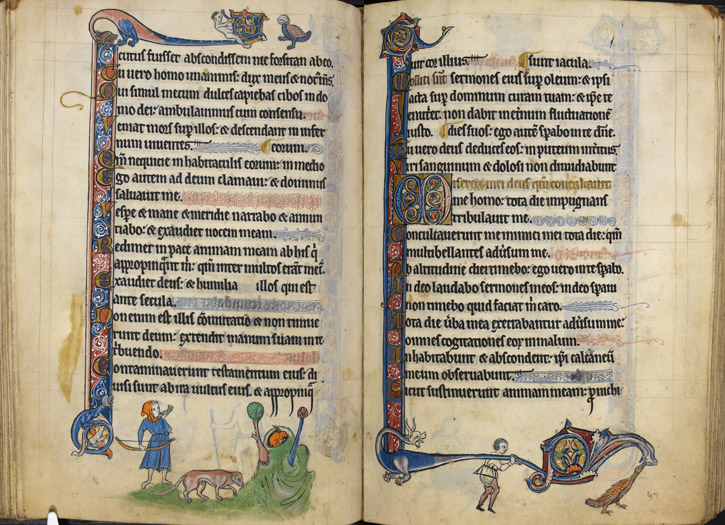 cutus fuisset abscondissem me forsitan ab eo.
Tu uero homo unanimis: dux meus &
Qui simul mecum dulces capiebas cibos in do
mo dei: ambulauimus cum consensu.
Veniat mors sup illos: & descendant in infer
num uiuentes. eorum:
Qm nequicie in habitaculis eorum: in medio
Ego autem ad deum clamaui: & dominus
saluauit me.
Vespe & mane & meridie narrabo & annun
tiabo: & exaudiet uocem meam.
Redimet in pace animam meam ab his q
appropinqt m: qm inter multos erāt mec.
Exaudiet deus: & humilia illos qui est
ante secula.
Non enim est illis cōmutatio & non timue
runt deum: extendit manum suam in re
tribuendo.
Contaminauerunt testamentum eius: di
uisi sunt ab ira uultus eius. & appropinq
uit cor illius. sunt iacula.
Molliti sūt sermones eius sup oleum: & ipsi
Iacta sup dominum curam tuam: & ipse te
enutriet: non dabit in eternum fluctuationē
iusto. dies suos: ego autē spabo in te dñe.
Tu uero deus deduces eos: in puteum interitus
Viri sanguinum & dolosi non dimidiabunt
Miserere mei deus qm conculcauit
me homo: tota die impugnans
tribulauit me.
Conculcauerunt me inimici mei tota die: qm
multi bellantes aduersum me.
Ab altitudine diei timebo: ego uero in te spabo.
In deo laudabo sermones meos: in deo spaui
non timebo quid faciat m caro.
Tota die uba mea execrabantur aduersum me:
omnes cogitationes eor in malum.
Inhabitabunt & abscondent: ipsi calcaneū
meum obseruabunt.
Sicut sustinuerunt animam meam: p nichi